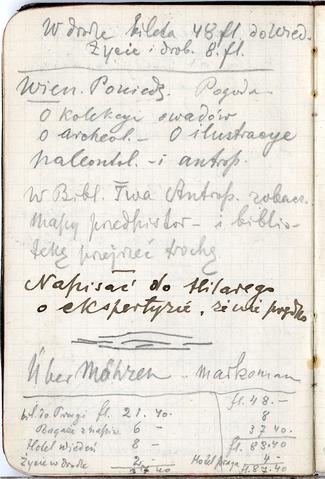 W drodze bileta 48 fl. do Wied.
Życie i drob. 8. fl.
Wien. Poniedz. Pogoda
O kolekcye owadów
O Archeol. – O ilustracye
paleontol. – i antrop.
W Bibl. Twa Antrop. zobacz.
mapy przedhistor – i biblio-
tekę przejrzeć trochę
Napisać do Hilarego
o ekspertyzie,
Über Mähren – Markoman
bil. do Pragi fl. 21.40.
Bagaże z napiw 6 –
Hotel Wiedeń 8 –
Życie w drodze 2 –
37 40
fl. 48. –
8
37 40
fl. 83.40
Hotel Praga 4. –
fl. 87.40